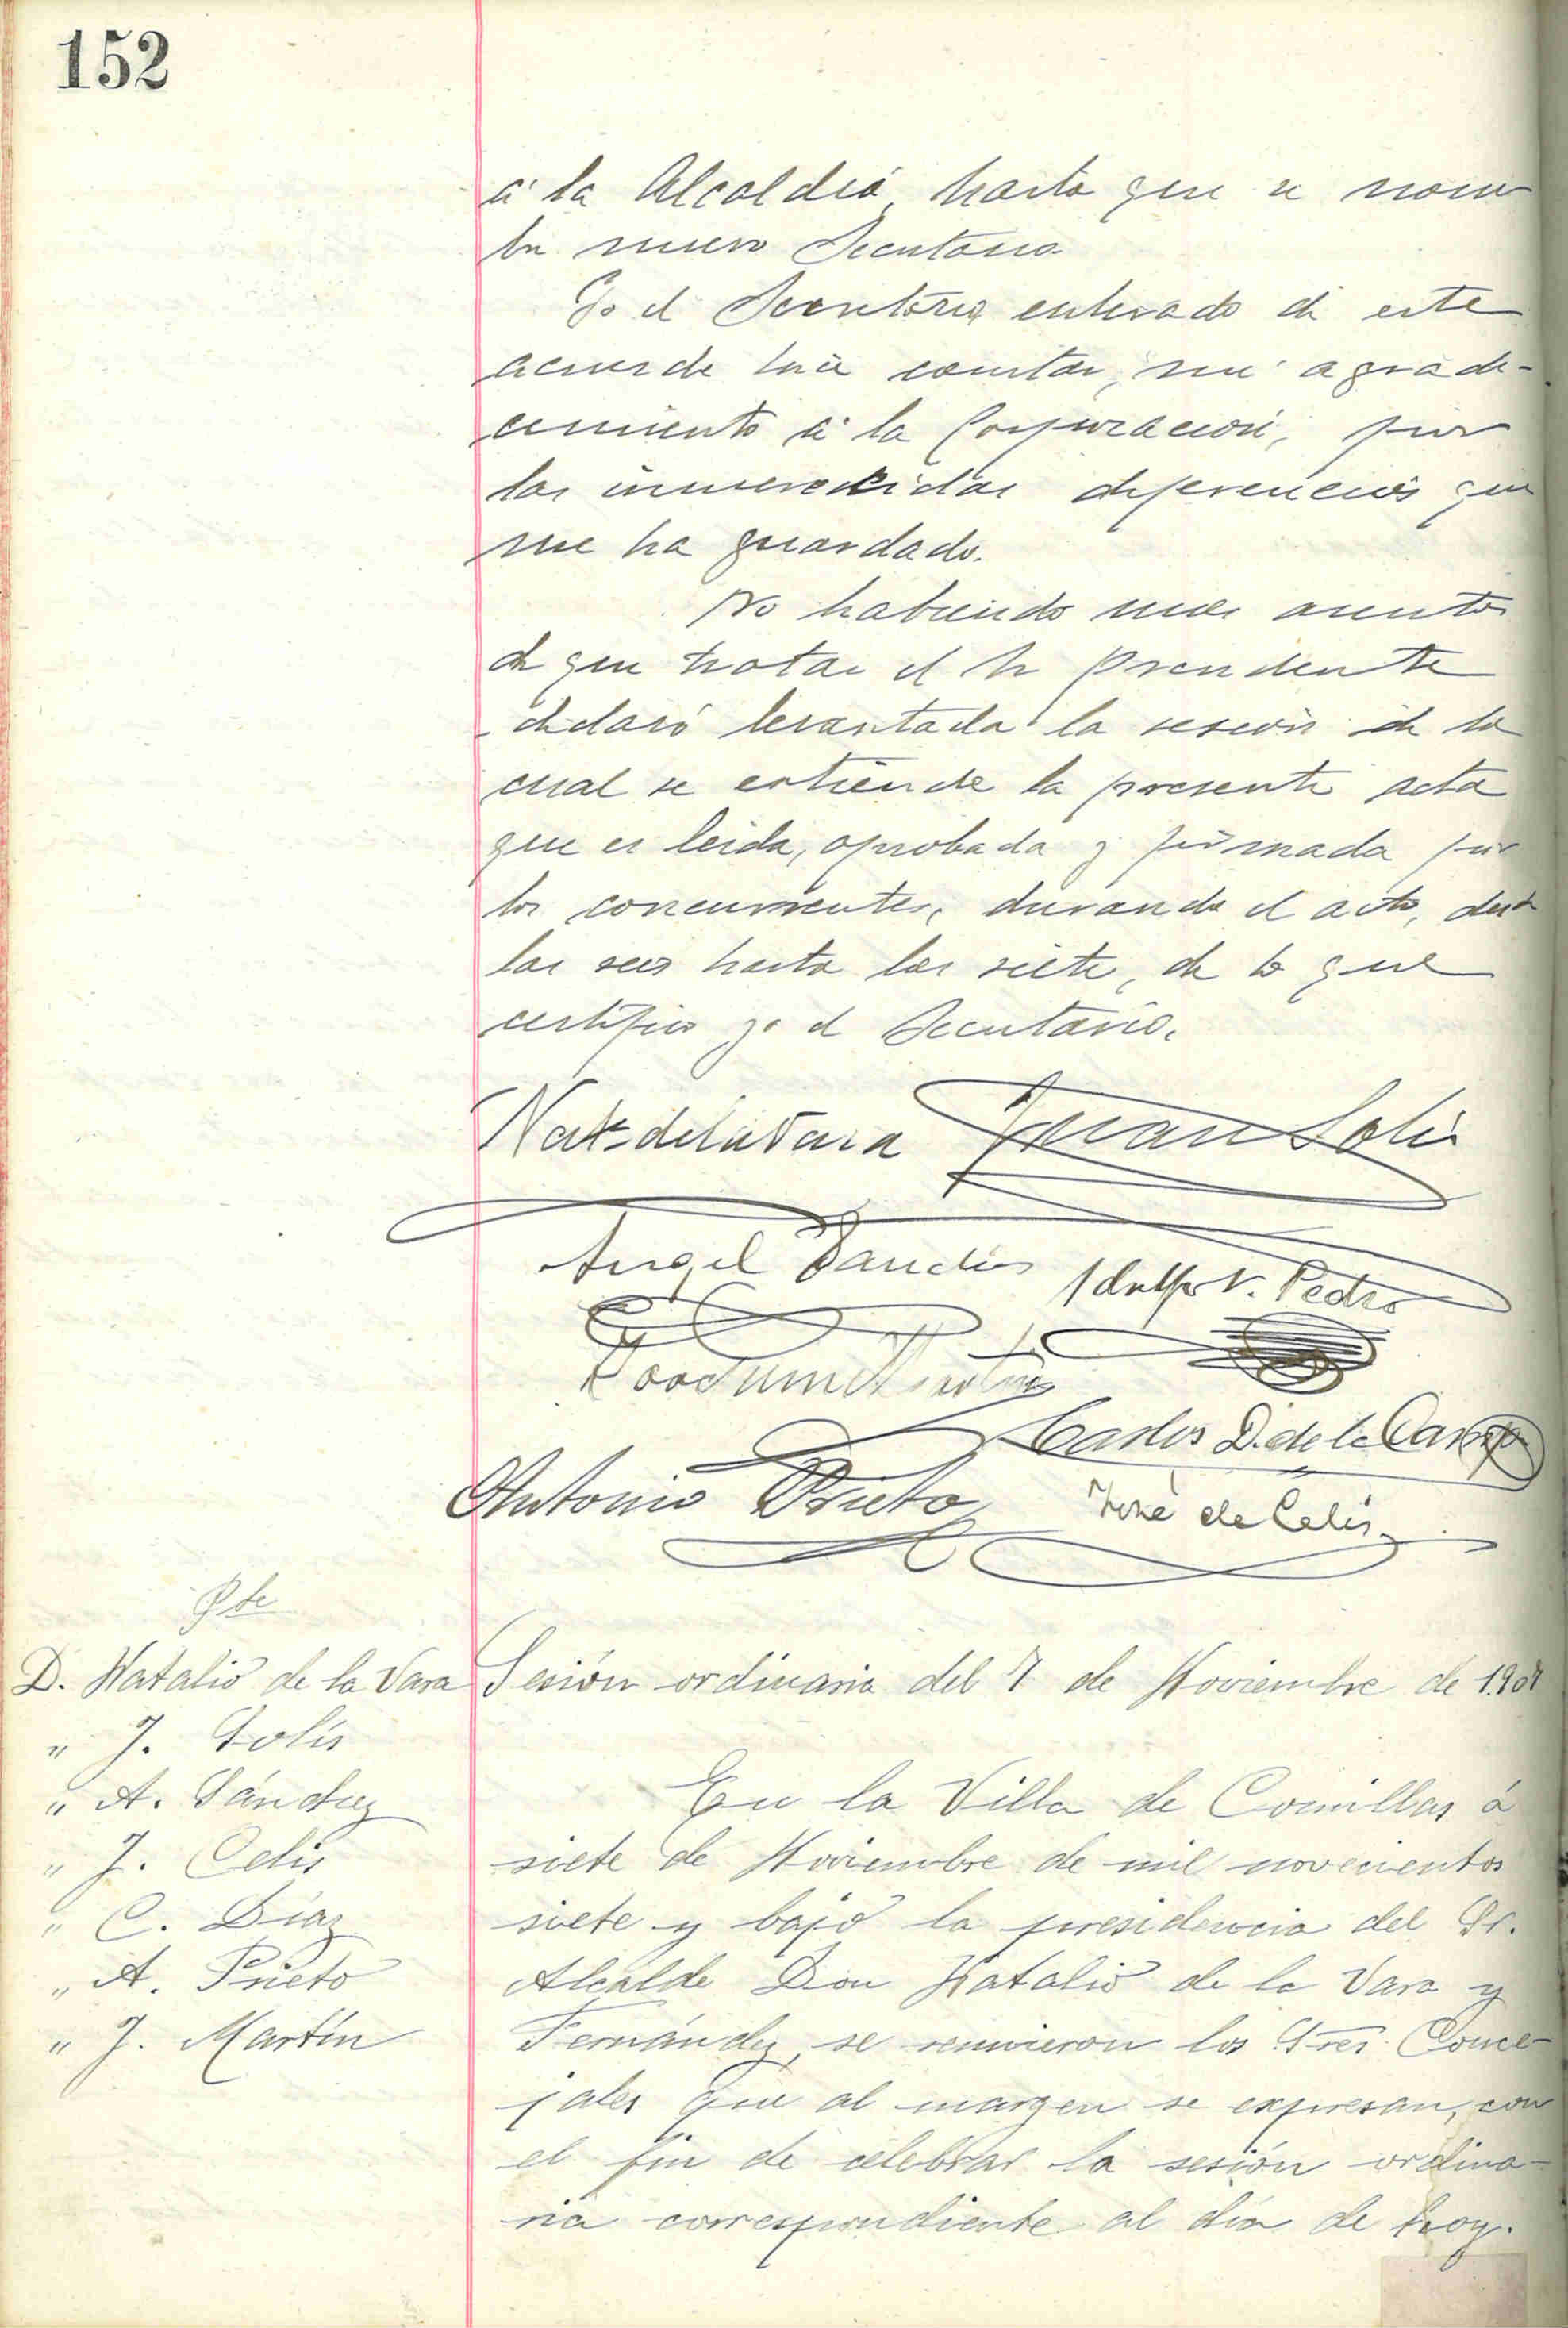 152
á la Alcaldiá, hasta que se nom
bre nuevo Secretario.
Yo el Secretario enterado de este
acuerdo hice constar, mi agrade-
cimiento á la Corporación, por
las inmerecidas deferencias que
me ha guardado.
No habiendo mas asuntos
de que tratar el Sr Presidente
declaró levantada la sesión de la
cual se extiende la presente acta
que es leida, aprobada y firmada por
los concurrentes, durando el acto, desde
las seis hasta las siete, de lo que
certifico yo el Secretario.
Nat. de la Vara Juan Solis
Angel Sanches Adolfo V. Pedro
Joaquin Martin
Carlos D. de la Campa
Antonio Prieto José de Celis
Pte
D. Natalio de la Vara
" J. Solís
" A. Sánchez
" J. Celis
" C. Díaz
" A. Prieto
" J. Martín
Sesión ordinaria del 7 de Noviembre de 1907
En la Villa de Comillas á
siete de Noviembre de mil novecientos
siete y bajo la presidencia del Sr.
Alcalde Don Natalio de la Vara y
Fernández, se reunieron los Sres. Conce-
jales que al margen se expresan, con
el fin de celebrar la sesión ordina-
ria correspondiente al día de hoy.